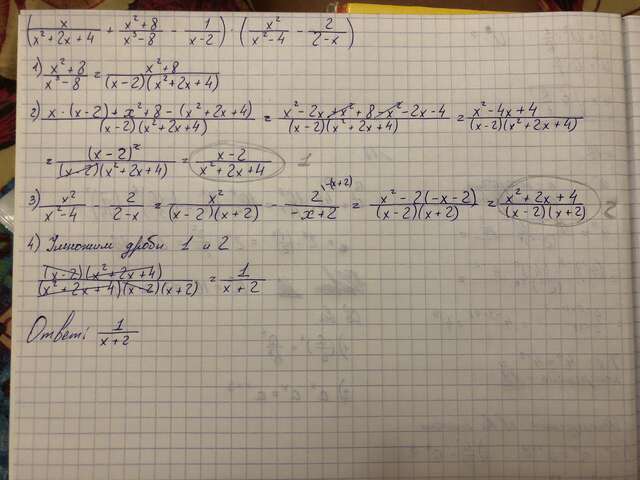 (x/(x²+2x+4) + (x²+8)/(x³-8) - 1/(x-2)) · (x²/(x²-4) - 2/(2-x))
1) (x²+8)/(x³-8) = (x²+8)/((x-2)(x²+2x+4))
2) (x·(x-2)+x²+8-(x²+2x+4))/((x-2)(x²+2x+4)) = (x²-2x+x²+8-x²-2x-4)/((x-2)(x²+2x+4)) = (x²-4x+4)/((x-2)(x²+2x+4))
= (x-2)²/((x-2)(x²+2x+4)) = (x-2)/(x²+2x+4) 1
3) x²/(x²-4) - 2/(2-x) = x²/((x-2)(x+2)) - 2/(-x+2) \-(x+2) = (x²-2(-x-2))/((x-2)(x+2)) = (x²+2x+4)/((x-2)(x+2)) 2
4) Умножим дроби 1 и 2
((x-2)(x²+2x+4))/((x²+2x+4)(x-2)(x+2)) = 1/(x+2)
Ответ: 1/(x+2)